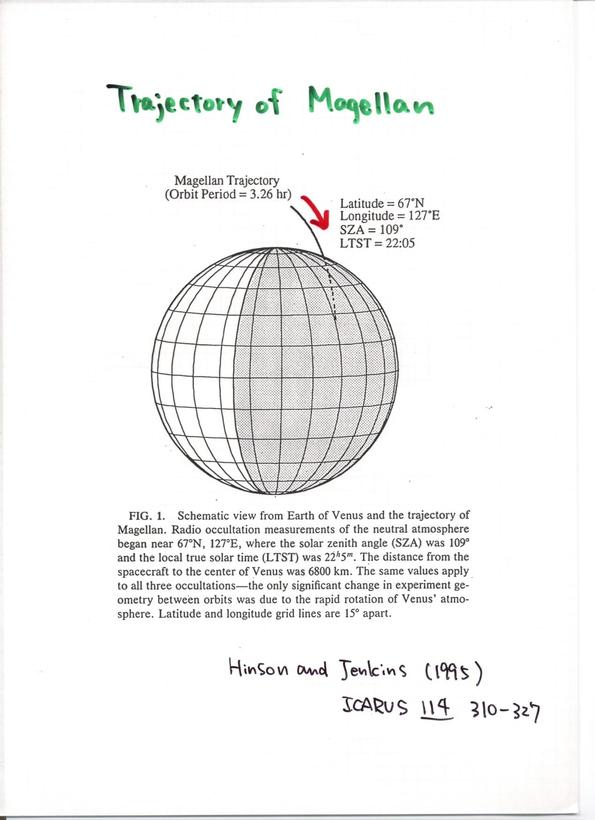 Trajectory of Magellan
Magellan Trajectory
(Orbit Period = 3.26 hr)
Latitude = 67°N
Longitude = 127°E
SZA = 109°
LTST = 22:05
FIG. 1. Schematic view from Earth of Venus and the trajectory of
Magellan. Radio occultation measurements of the neutral atmosphere
began near 67°N, 127°E, where the solar zenith angle (SZA) was 109°
and the local true solar time (LTST) was 22ʰ5ᵐ. The distance from the
spacecraft to the center of Venus was 6800 km. The same values apply
to all three occultations—the only significant change in experiment ge-
ometry between orbits was due to the rapid rotation of Venus' atmo-
sphere. Latitude and longitude grid lines are 15° apart.
Hinson and Jenkins (1995)
ICARUS 114 310-327